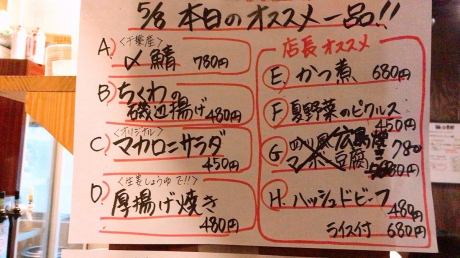 5/8 本日のオススメ一品!!
A) <千葉産>
〆鯖 780円
B) ちくわの
磯辺揚げ 480円
C) <オリジナル>
マカロニサラダ
450円
D) <生姜しょうゆで!!>
厚揚げ焼き
480円
店長オススメ
E) かつ煮 680円
F) 夏野菜のピクルス
450円
G
豆腐 780
H. ハッシュドビーフ
480円
ライス付 680円